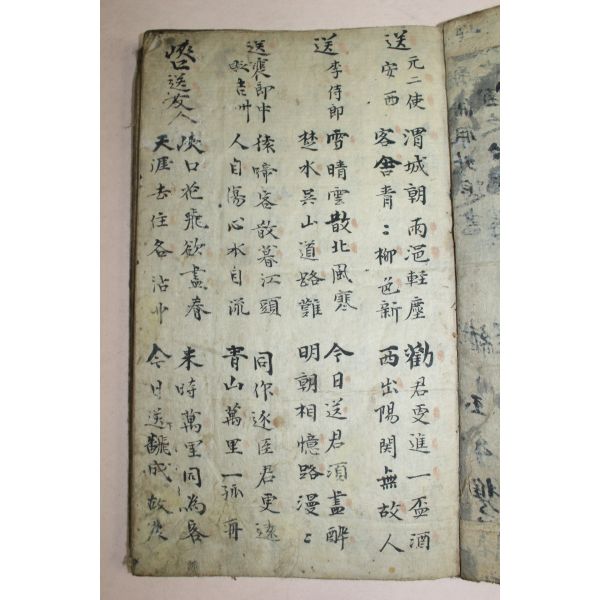 送元二使
安西
渭城朝雨浥輕塵 勸君更進一盃酒
客舍青〻柳色新 西出陽関無故人
送李侍郎
雪晴雲散北風寒 今日送君須盡醉
楚水吳山道路難 明朝相憶路漫〻
送裵郎中
貶吉州
猿啼客散暮江頭 同作逐臣君更遠
人自傷心水自流 青山萬里一孤舟
峽口送友人
峽口花飛欲盡春 来時萬里同為客
天涯去住各沾巾 今日送飜成故